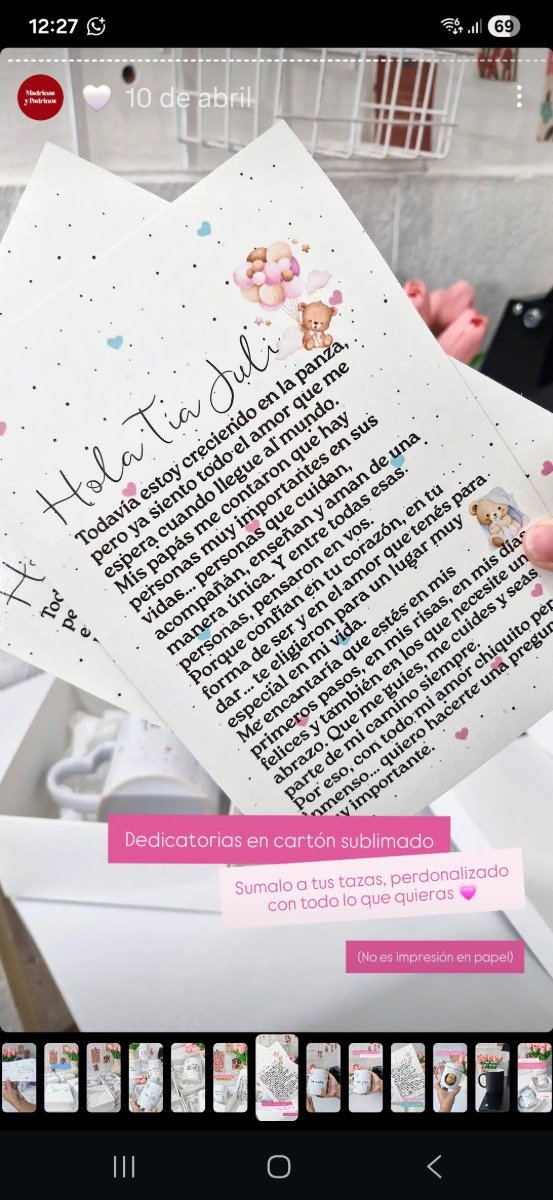 12:27
69
Madrinas
y Padrinos
10 de abril
Hola Tía Juli
Todavía estoy creciendo en la panza,
pero ya siento todo el amor que me
espera cuando llegue al mundo.
Mis papás me contaron que hay
personas muy importantes en sus
vidas... personas que cuidan,
acompañan, enseñan y aman de una
manera única. Y entre todas esas
personas, pensaron en vos.
Porque confían en tu corazón, en tu
forma de ser y en el amor que tenés para
dar... te eligieron para un lugar muy
especial en mi vida.
Me encantaría que estés en mis
primeros pasos, en mis risas, en mis días
felices y también en los que necesite un
abrazo. Que me guíes, me cuides y seas
parte de mi camino siempre.
Por eso, con todo mi amor chiquito per
inmenso... quiero hacerte una pregun
y importante.
H
Tod
pe
e
Dedicatorias en cartón sublimado
Sumalo a tus tazas, perdonalizado
con todo lo que quieras
(No es impresión en papel)